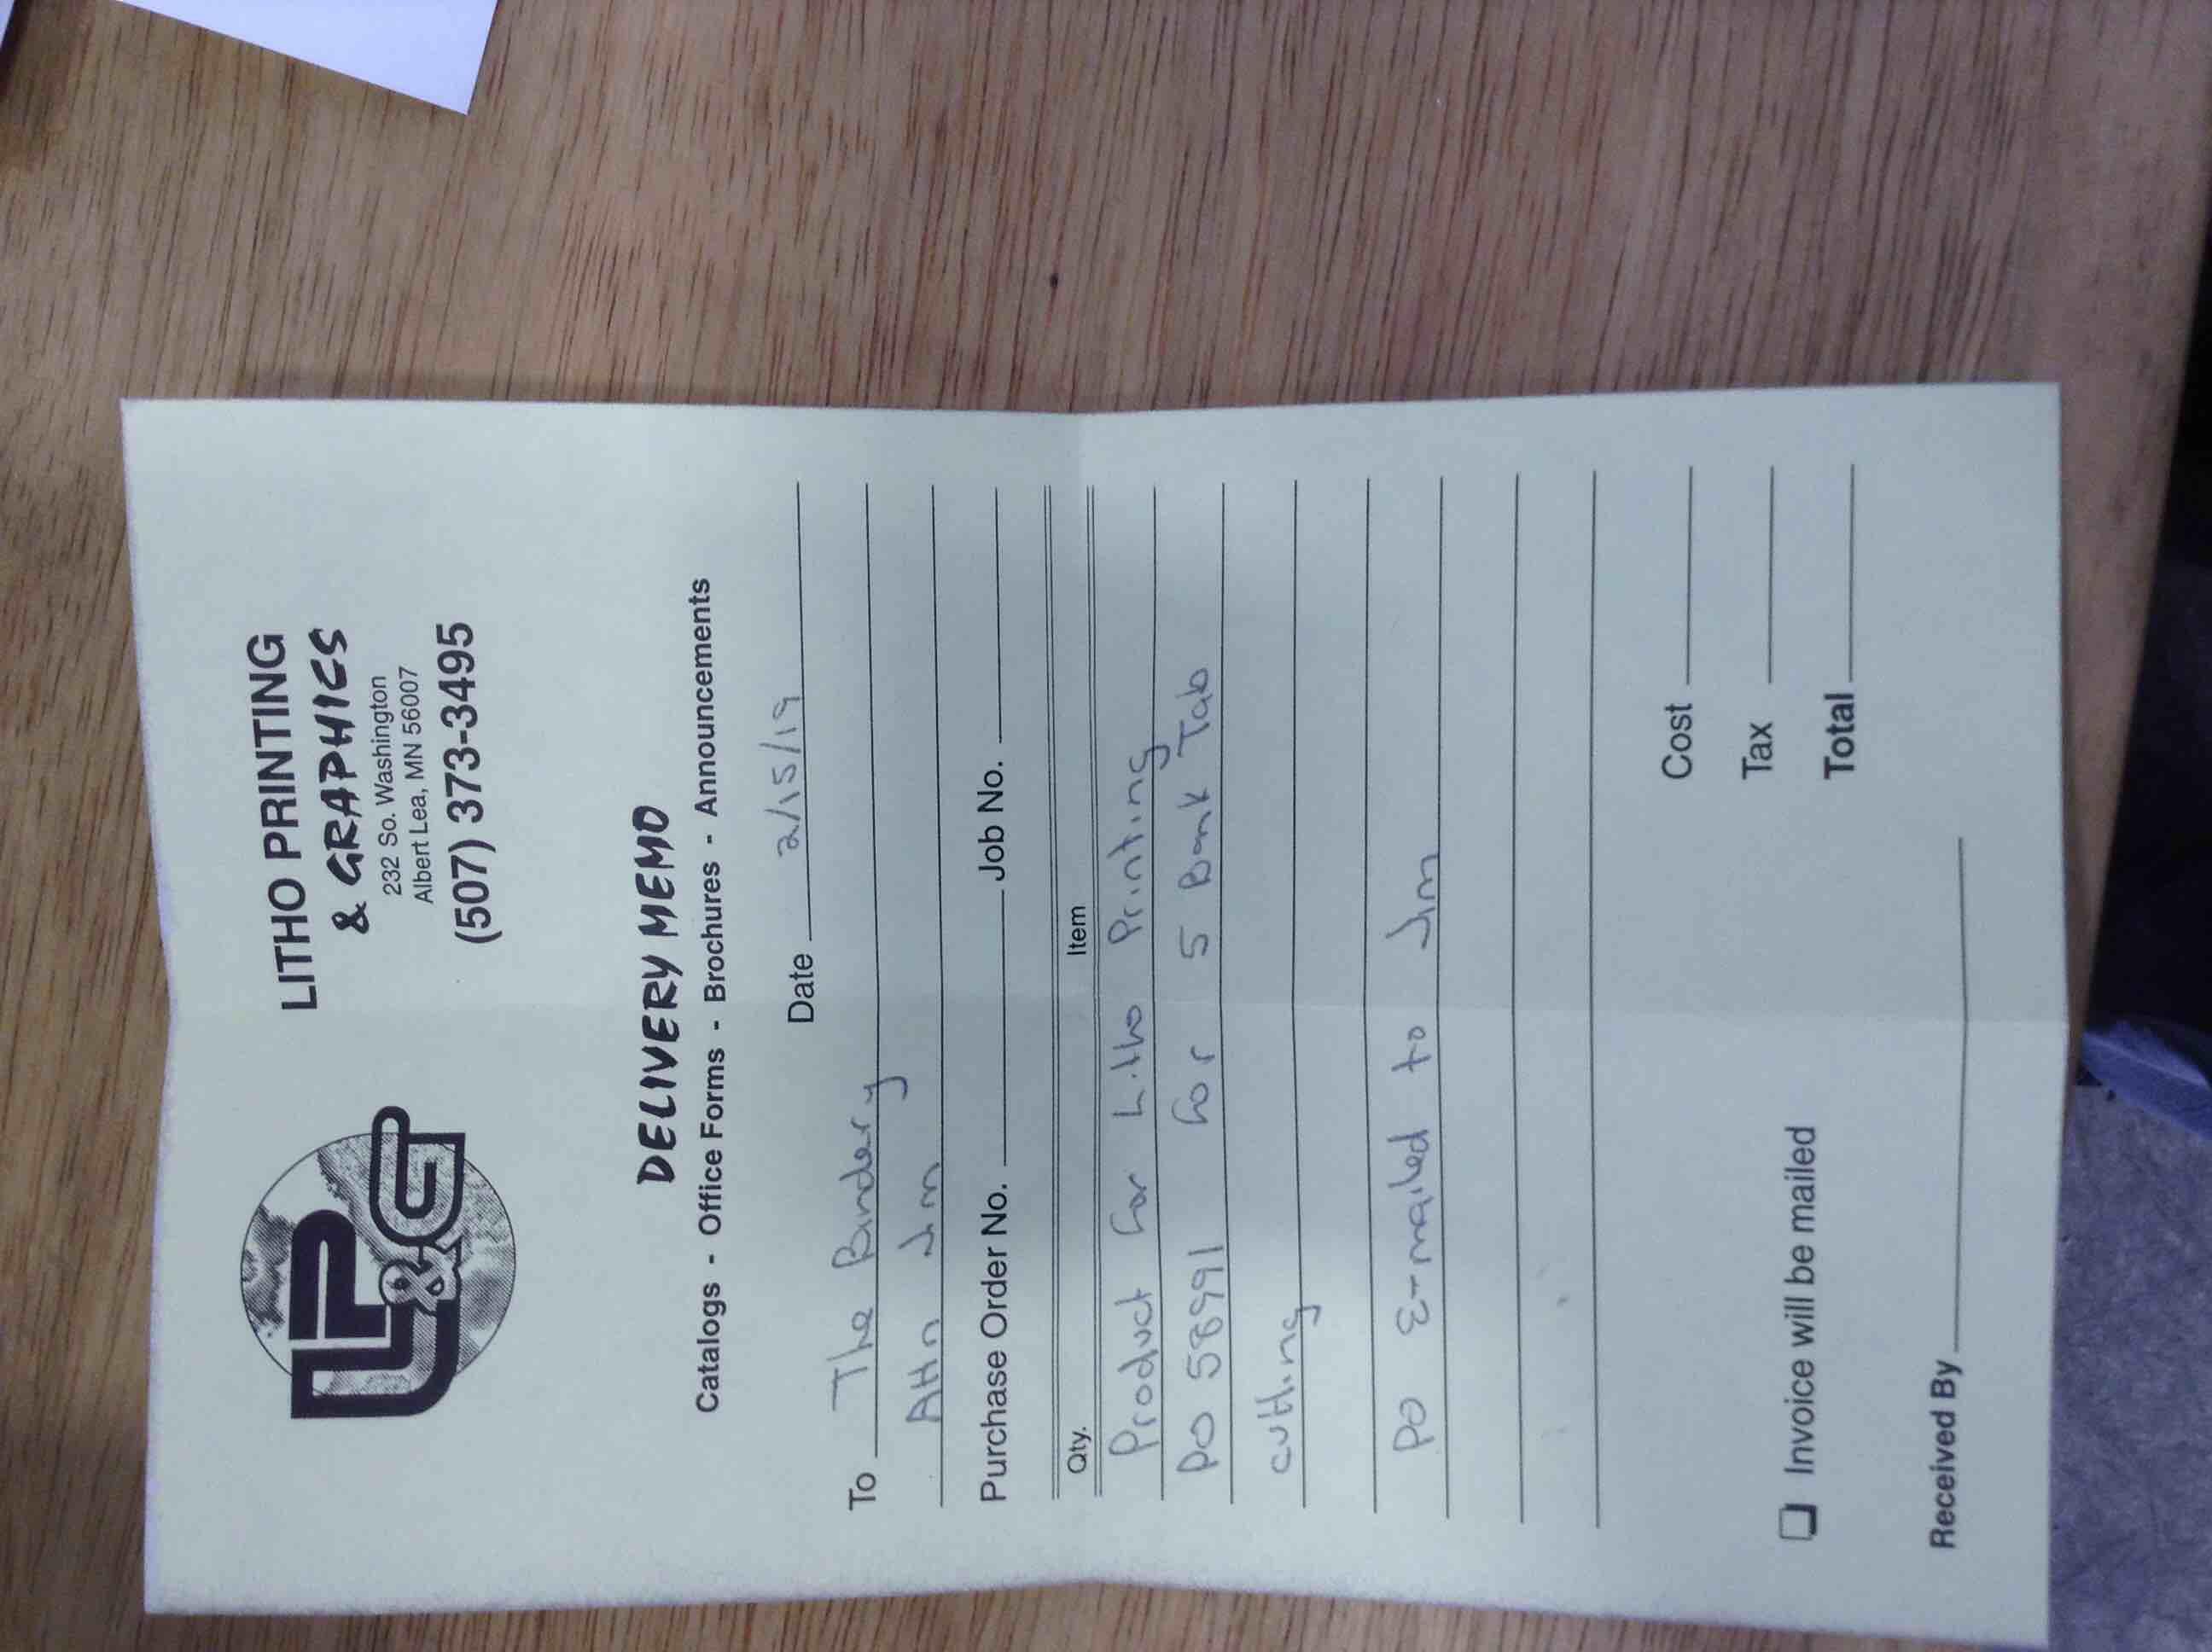 LP&G
LITHO PRINTING
& GRAPHICS
232 So. Washington
Albert Lea, MN 56007
(507) 373-3495
DELIVERY MEMO
Catalogs - Office Forms - Brochures - Announcements
Date 2/15/19
To The Bindery
Attn Jim
Purchase Order No. Job No.
Qty. Item
Product for Litho Printing
PO 58991 for 5 Bank Tab
cutting
PO E-mailed to Jim
Cost
Tax
Invoice will be mailed Total
Received By